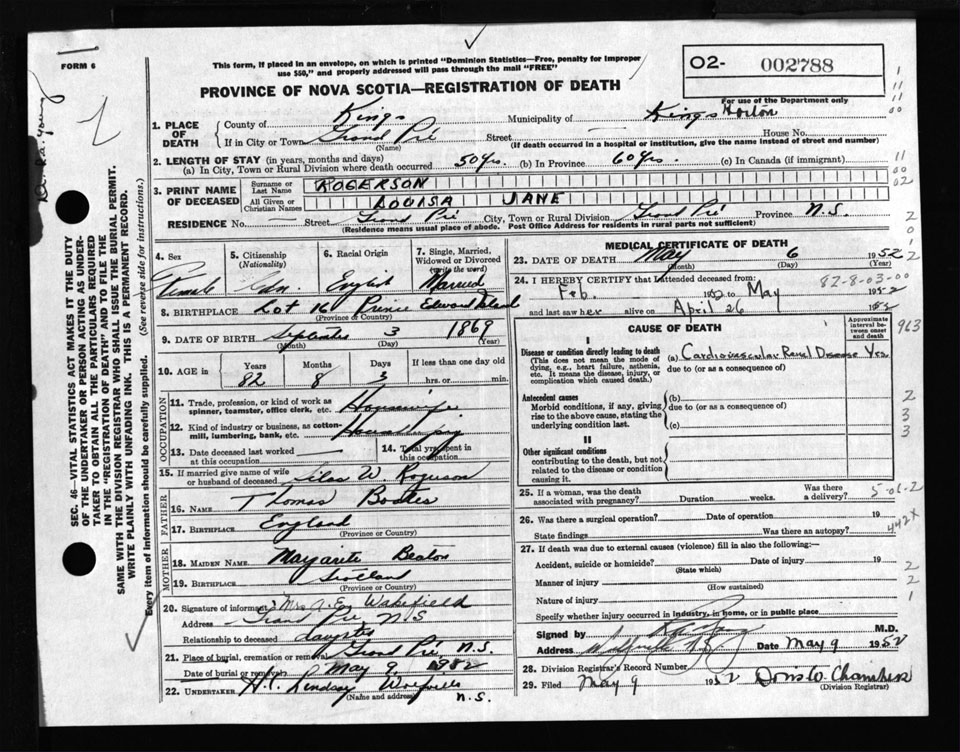 FORM 6
This form, if placed in an envelope, on which is printed "Dominion Statistics—Free, penalty for improper
use $50," and properly addressed will pass through the mail "FREE"
O2- 002788
PROVINCE OF NOVA SCOTIA—REGISTRATION OF DEATH
For use of the Department only
1. PLACE OF DEATH County of Kings Municipality of Kings Horton
If in City or Town Grand Pré (Name) Street House No.
(If death occurred in a hospital or institution, give the name instead of street and number)
2. LENGTH OF STAY (in years, months and days)
(a) In City, Town or Rural Division where death occurred 50 yrs. (b) In Province 60 yrs. (c) In Canada (if immigrant)
3. PRINT NAME OF DECEASED Surname or Last Name ROGERSON
All Given or Christian Names LOUISA JANE
RESIDENCE No. Street Grand Pré City, Town or Rural Division Grand Pré Province N.S.
(Residence means usual place of abode. Post Office Address for residents in rural parts not sufficient)
4. Sex Female
5. Citizenship (Nationality) Cdn
6. Racial Origin English
7. Single, Married, Widowed or Divorced (write the word) Married
8. BIRTHPLACE Lot 16 Prince Edward Island
(Province or Country)
9. DATE OF BIRTH September 3 1869
(Month) (Day) (Year)
10. AGE in Years 82 Months 8 Days 3 If less than one day old hrs. or min.
OCCUPATION
11. Trade, profession, or kind of work as spinner, teamster, office clerk, etc. Housewife
12. Kind of industry or business, as cotton-mill, lumbering, bank, etc.
13. Date deceased last worked at this occupation
14. Total yrs. spent in this occupation
15. If married give name of wife or husband of deceased Silas W Rogerson
FATHER
16. NAME Thomas
17. BIRTHPLACE England
(Province or Country)
MOTHER
18. MAIDEN NAME Beaton
19. BIRTHPLACE Scotland
(Province or Country)
20. Signature of informant Mrs A. E. Wakefield
Address Grand Pré N S
Relationship to deceased daughter
21. Place of burial, cremation or removal Grand Pré, N.S.
Date of burial or removal May 9 1952
22. UNDERTAKER H. Lindsay Wolfville N.S.
(Name and address)
MEDICAL CERTIFICATE OF DEATH
23. DATE OF DEATH May 6 1952
(Month) (Day)
24. I HEREBY CERTIFY that I attended deceased from:
Feb. 1952 to May 1952
82-8-03-00
and last saw her alive on April 26 1952
CAUSE OF DEATH
Approximate interval between onset and death
963
I
Disease or condition directly leading to death
(This does not mean the mode of dying, e.g., heart failure, asthenia, etc. It means the disease, injury, or complication which caused death.)
(a) Cardiovascular Renal Disease Yrs
due to (or as a consequence of)
Antecedent causes
Morbid conditions, if any, giving rise to the above cause, stating the underlying condition last.
(b)
due to (or as a consequence of)
(c)
II
Other significant conditions
contributing to the death, but not related to the disease or condition causing it.
25. If a woman, was the death associated with pregnancy? Duration weeks. Was there a delivery? 5-06-2
26. Was there a surgical operation? Date of operation 19
State findings Was there an autopsy? 442X
27. If death was due to external causes (violence) fill in also the following:—
Accident, suicide or homicide? (State which) Date of injury 19
Manner of injury (How sustained)
Nature of injury
Specify whether injury occurred in industry, in home, or in public place
Signed by M.D.
Address Wolfville N.S. Date May 9 1952
28. Division Registrar's Record Number
29. Filed May 9 1952 Doris W. Chambers
(Division Registrar)
SEC. 46—VITAL STATISTICS ACT MAKES IT THE DUTY
OF THE UNDERTAKER OR PERSON ACTING AS UNDER-
TAKER TO OBTAIN ALL THE PARTICULARS REQUIRED
IN THE "REGISTRATION OF DEATH" AND TO FILE THE
SAME WITH THE DIVISION REGISTRAR WHO SHALL ISSUE THE BURIAL PERMIT.
WRITE PLAINLY WITH UNFADING INK. THIS IS A PERMANENT RECORD.
Every item of information should be carefully supplied. (See reverse side for instructions.)